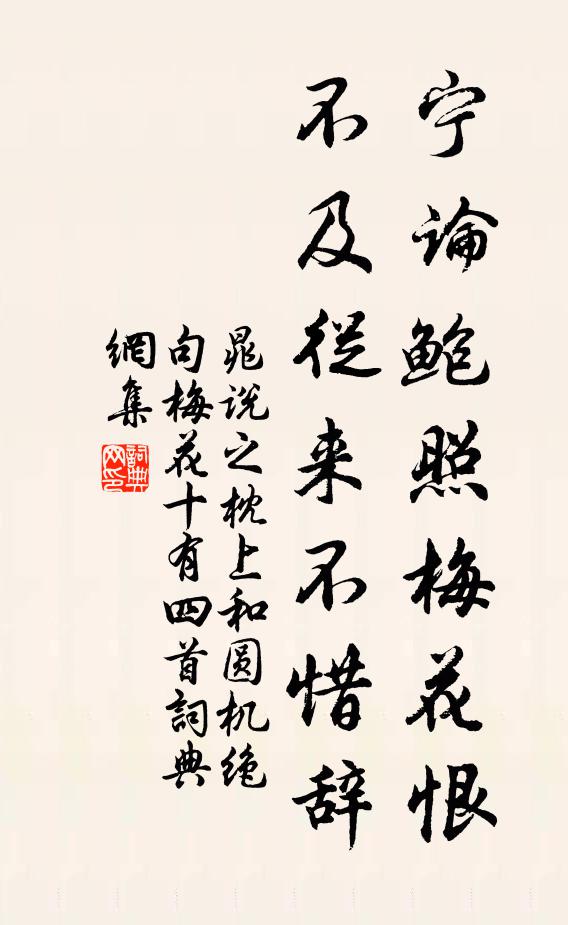 宁論鲍照梅花恨
不及從来不惜辞
晁説之枕上和圆机绝
句梅花十有四首詞典
網集
詞典
网印